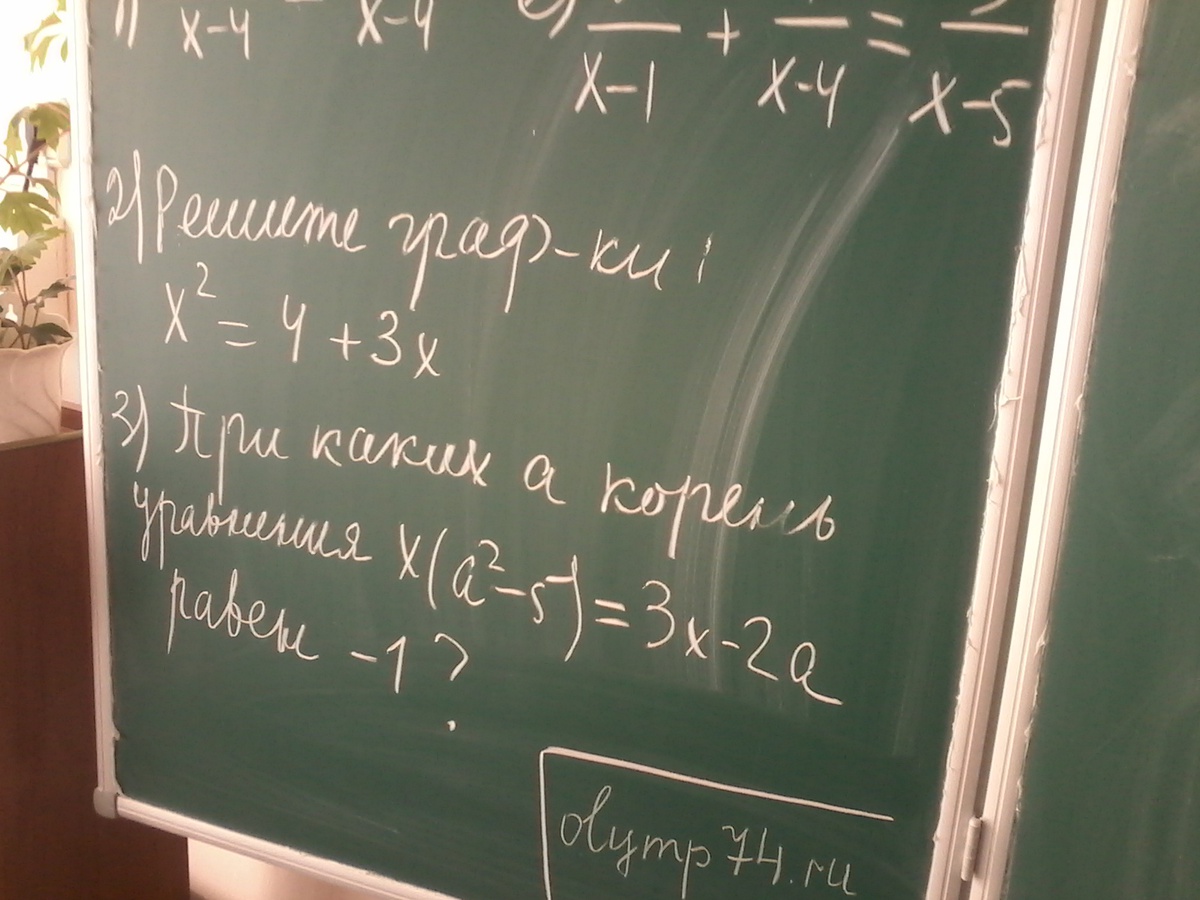 x-4 x-4
x-1 + x-4 = x-5
2) Решите граф-ки
x² = 4 + 3x
3) При каких a корень
уравнения x(a²-5) = 3x-2a
равен -1 ?
olymp74.ru